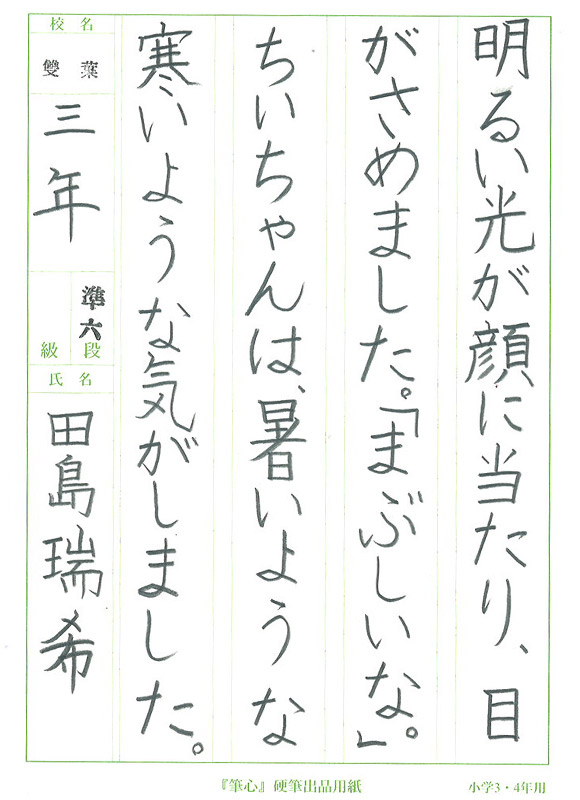 明るい光が顔に当たり、目
がさめました。「まぶしいな。」
ちいちゃんは、暑いような
寒いような気がしました。
校名
雙葉
三年
準六
段
級
氏名
田島瑞希
『筆心』硬筆出品用紙
小学3・4年用